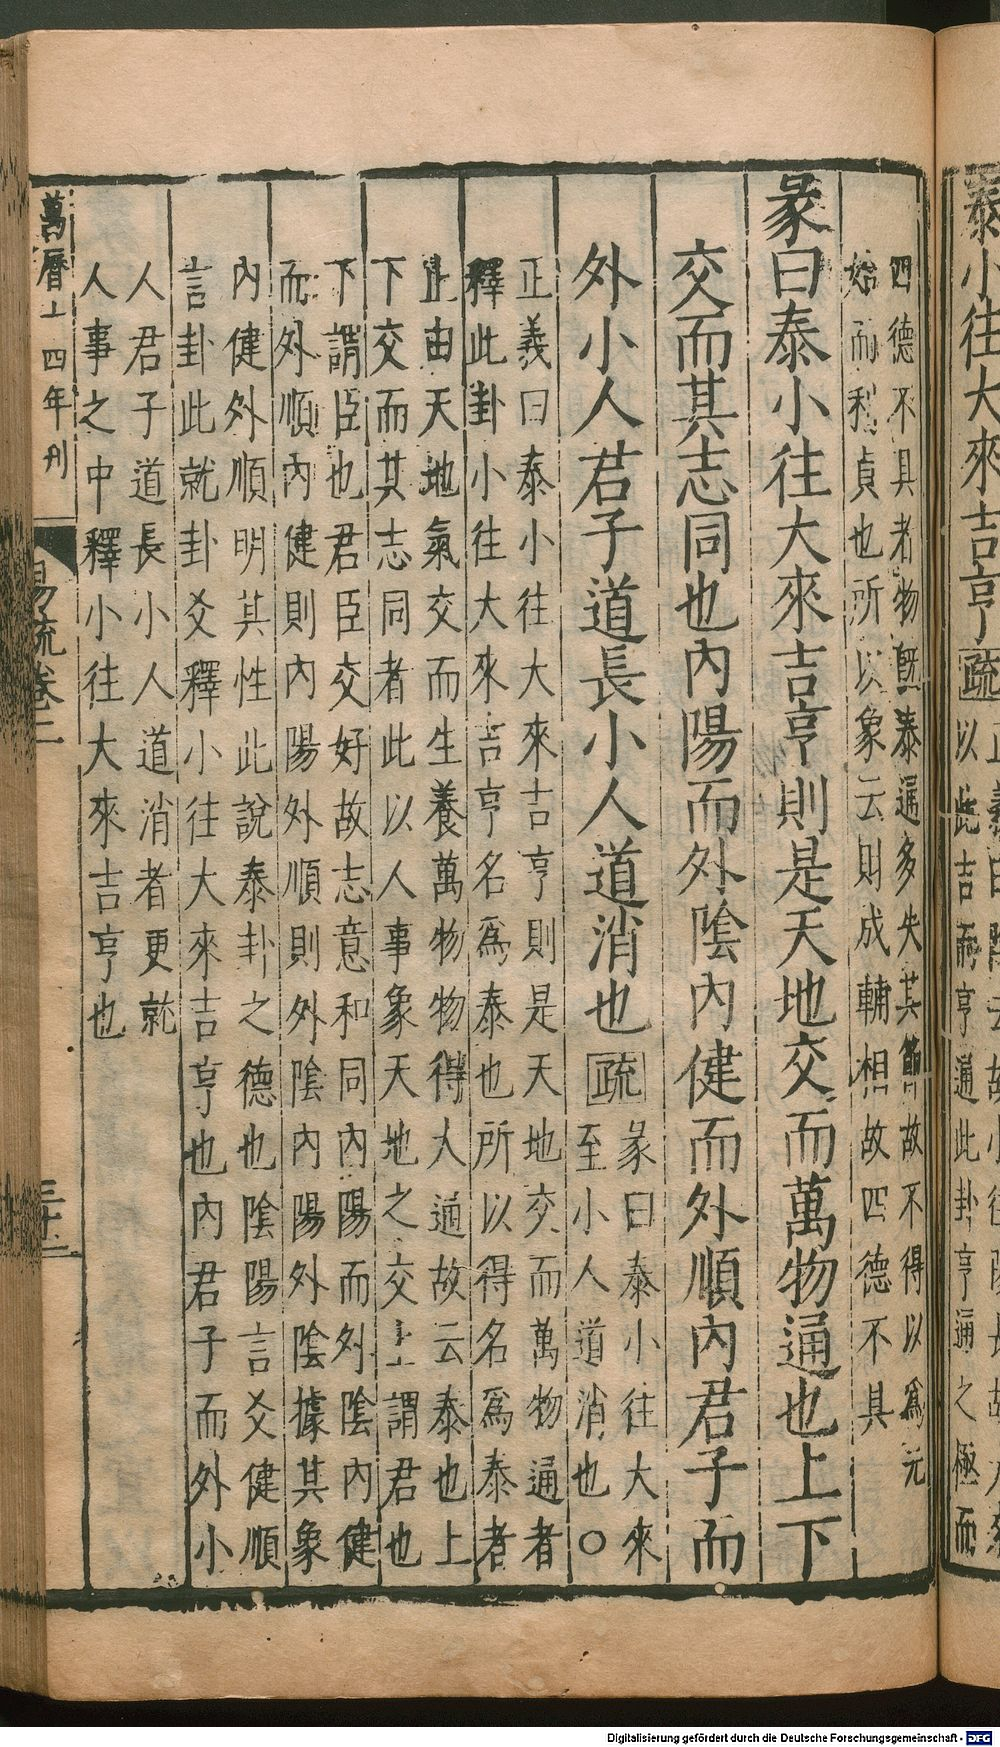 泰小往大來吉亨疏
以此吉而亨通此卦亨通之極而
四德不具者物既泰通多失其節故不得以爲元
始而利貞也所以象云則成輔相故四德不具
彖曰泰小往大來吉亨則是天地交而萬物通也上下
交而其志同也內陽而外陰內健而外順內君子而
外小人君子道長小人道消也疏
彖曰泰小往大來
至小人道消也○
正義曰泰小往大來吉亨則是天地交而萬物通者
釋此卦小往大來吉亨名爲泰也所以得名爲泰者
止由天地氣交而生養萬物物得大通故云泰也上
下交而其志同者此以人事象天地之交上謂君也
下謂臣也君臣交好故志意和同內陽而外陰內健
而外順內健則內陽外順則外陰內陽外陰據其象
內健外順明其性此說泰卦之德也陰陽言爻健順
言卦此就卦爻釋小往大來吉亨也內君子而外小
人君子道長小人道消者更就
人事之中釋小往大來吉亨也
萬曆十四年刊
易疏卷二
Digitalisierung gefördert durch die Deutsche Forschungsgemeinschaft - DFG